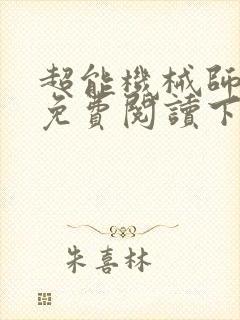 超能機械師
免費閱讀下
朱喜林